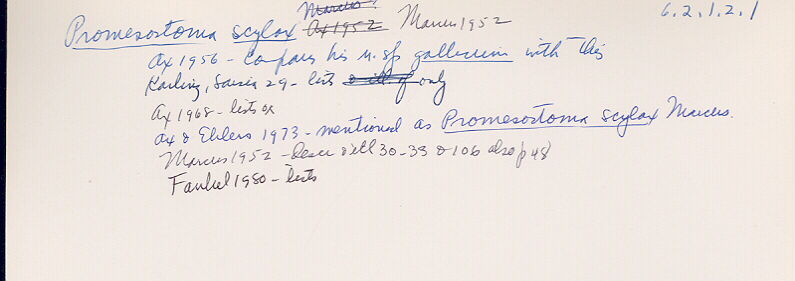 Marcus? 6.2.1.2.1
Promesostoma scylax Ax 1952 Marcus 1952
Ax 1956 - Compares his n. sp gallicum with this
Karling, Sarsia 29 - lists & ill. of only
Ax 1968 - lists
Ax & Ehlers 1973 - mentioned as Promesostoma scylax Marcus.
Marcus 1952 - Descr & ill 30-33 & 106 also p 48
Faubel 1980 - lists